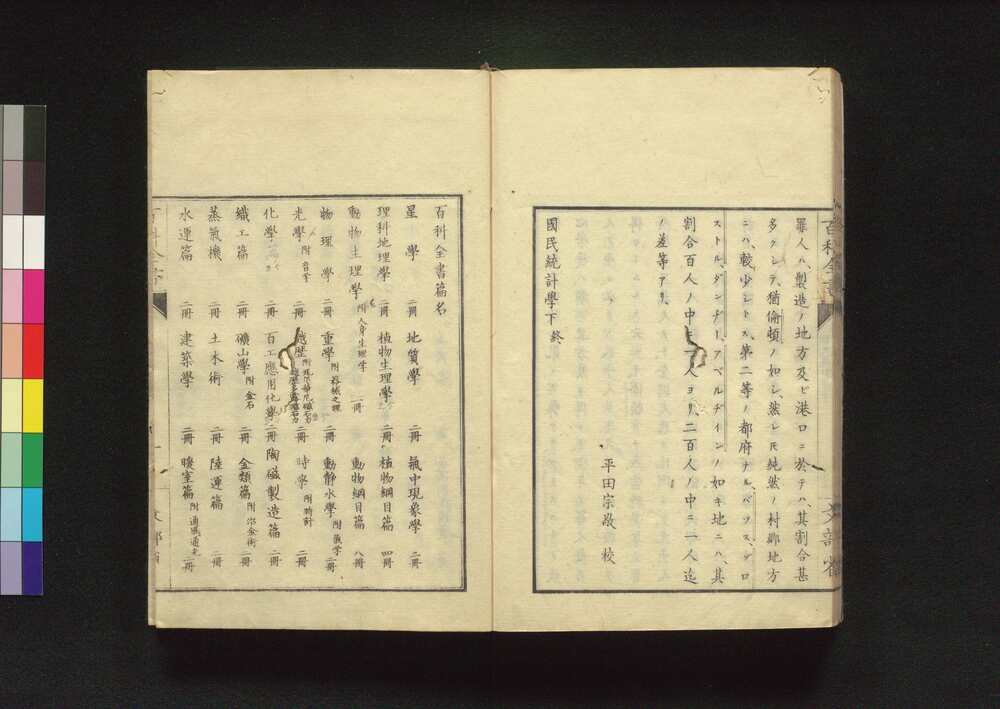 罪人ハ、製造ノ地方及ビ港口ニ於テハ、其割合甚
多クシテ、猶倫頓ノ如シ、然レ𪜈純然ノ村鄕地方
ニハ、較少シトス、第二等ノ都府ナル、バツス、ブロ
ストル、ダンデー、アベルヂインノ如キ地ニハ、其
割合百人ノ中ニ一人ヨリ、二百人ノ中ニ一人迄
ノ差等アリ
平田宗敬 校
國民統計學下 終
百科全書
文部省
百科全書篇名
星學 二冊 地質學 二冊 氣中現象學 二冊
理科地理學 二冊 植物生理學 二冊 植物綱目篇 四冊
動物生理學 附人身生理學 一冊 動物綱目篇 八冊
物理學 二冊 重學 附器械之理 二冊 動靜水學 附氣學 二冊
光學 附音學 二冊 二冊 時學 附時計 二冊
化學 二冊 百工應用化學 二冊 陶磁製造篇 二冊
織工篇 二冊 礦山學 附金石 二冊 金類篇 附冶金術 二冊
蒸氣機 二冊 土木術 二冊 陸運篇 二冊
水運篇 二冊 建築學 二冊 暖室篇 附通風通光 二冊
百科全書
文部省